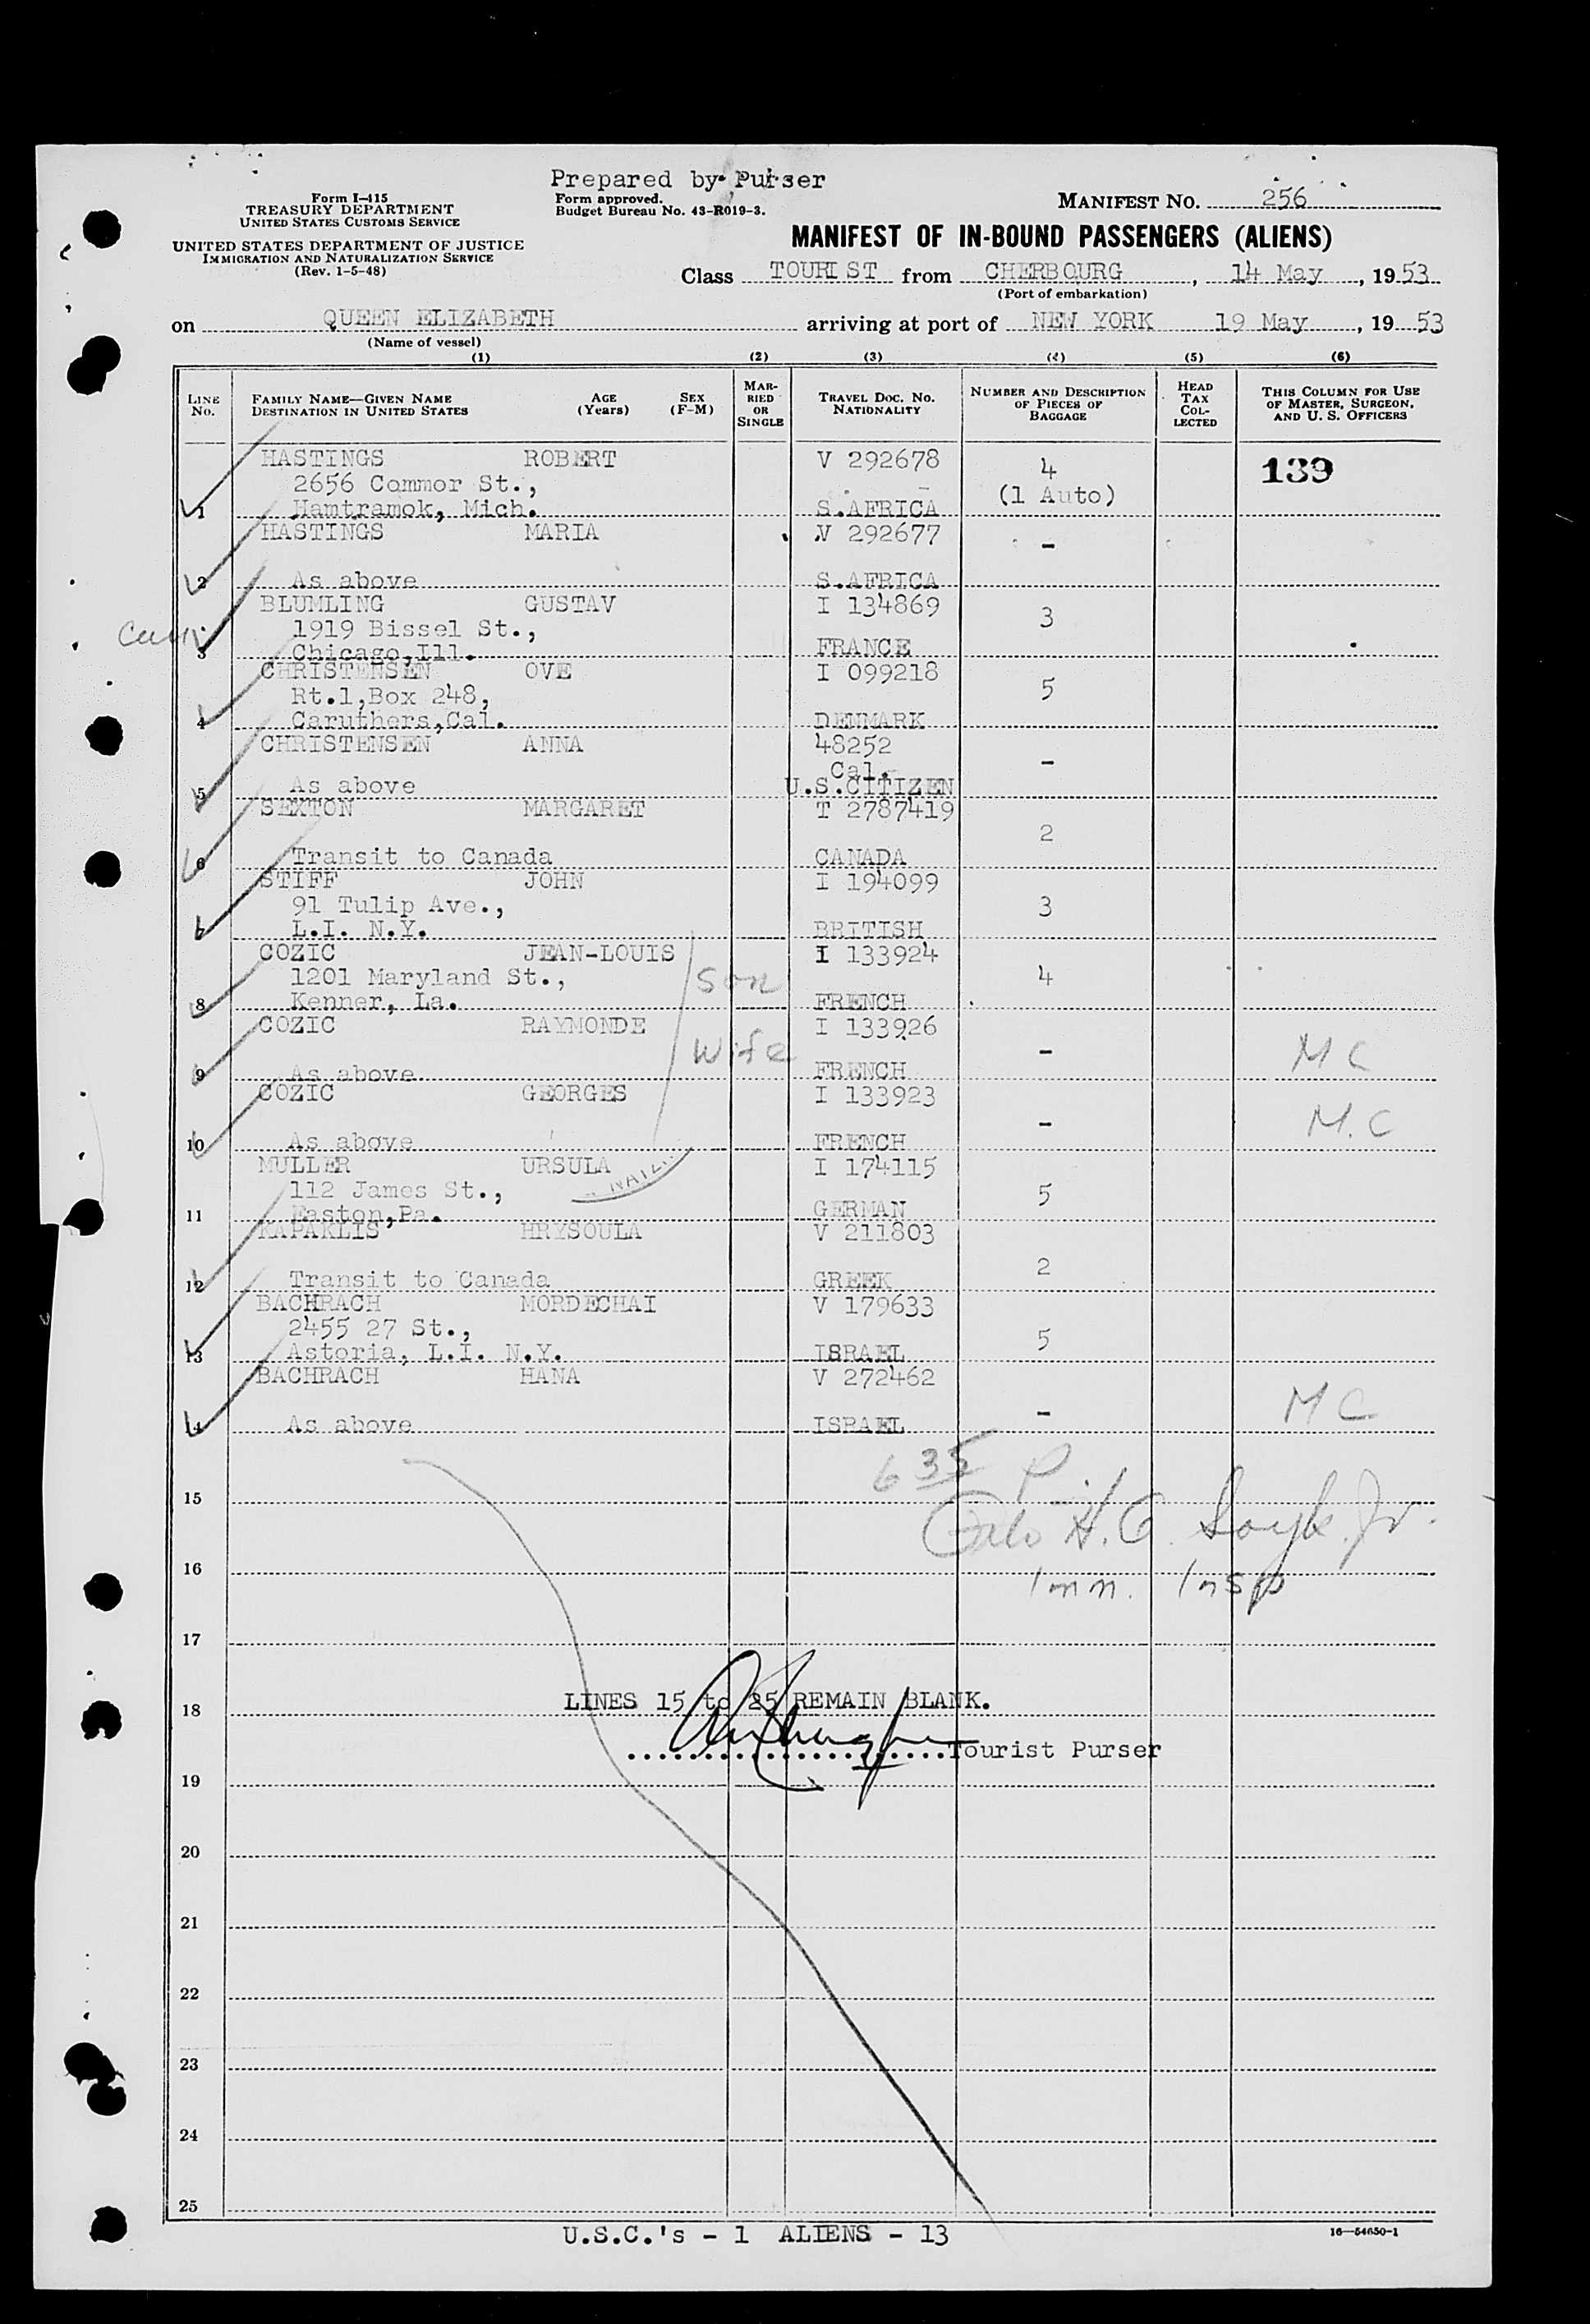 Prepared by Purser
Form I-415
TREASURY DEPARTMENT
UNITED STATES CUSTOMS SERVICE
UNITED STATES DEPARTMENT OF JUSTICE
IMMIGRATION AND NATURALIZATION SERVICE
(Rev. 1-5-48)
Form approved.
Budget Bureau No. 43-R019-3.
MANIFEST NO. 256
MANIFEST OF IN-BOUND PASSENGERS (ALIENS)
Class TOURIST from CHERBOURG, 14 May, 1953
(Port of embarkation)
on QUEEN ELIZABETH arriving at port of NEW YORK 19 May, 1953
(Name of vessel)
(1) (2) (3) (4) (5) (6)
LINE No. FAMILY NAME—GIVEN NAME DESTINATION IN UNITED STATES AGE (Years) SEX (F-M) MARRIED OR SINGLE TRAVEL DOC. NO. NATIONALITY NUMBER AND DESCRIPTION OF PIECES OF BAGGAGE HEAD TAX COLLECTED THIS COLUMN FOR USE OF MASTER, SURGEON, AND U. S. OFFICERS
HASTINGS ROBERT V 292678 4 139
2656 Commor St., (1 Auto)
1 Hamtramok, Mich. S.AFRICA
HASTINGS MARIA V 292677 -
2 As above S.AFRICA
BLUMLING GUSTAV I 134869 3
1919 Bissel St.,
3 Chicago,Ill. FRANCE
CHRISTENSEN OVE I 099218 5
Rt.1,Box 248,
4 Caruthers,Cal. DENMARK
CHRISTENSEN ANNA 48252 -
Cal.
5 As above U.S.CITIZEN
SEXTON MARGARET T 2787419 2
6 Transit to Canada CANADA
STIFF JOHN I 194099 3
91 Tulip Ave.,
7 L.I. N.Y. BRITISH
COZIC JEAN-LOUIS son I 133924 4
1201 Maryland St.,
8 Kenner, La. FRENCH
COZIC RAYMONDE wife I 133926 - M C
9 As above FRENCH
COZIC GEORGES I 133923 - M.C
10 As above FRENCH
MULLER URSULA I 174115 5
112 James St.,
11 Easton,Pa. GERMAN
KAPAKLIS HRYSOULA V 211803 2
12 Transit to Canada GREEK
BACHRACH MORDECHAI V 179633 5
2455 27 St.,
13 Astoria, L.I. N.Y. ISRAEL
BACHRACH HANA V 272462 - M C
14 As above ISRAEL
6 35 P
15
H. Jr.
16
Imm. Insp
17
LINES 15 to 25 REMAIN BLANK.
18
Tourist Purser
19
20
21
22
23
24
25
U.S.C.'s - 1 ALIENS - 13
16—54650-1